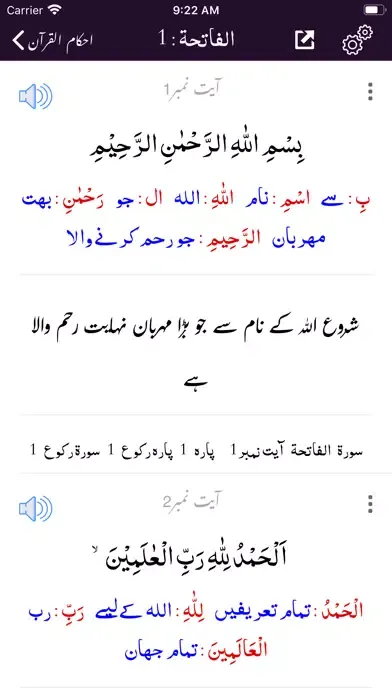 Carrier 9:22 AM
احکام القرآن الفاتحة : 1
آیت نمبر1
بِسْمِ اللهِ الرَّحْمٰنِ الرَّحِيْمِ
بِ: سے اسْمِ: نام اللهِ: الله ال: جو رَحْمٰنِ: بهت
مهربان الرَّحِيمِ: جو رحم کرنے والا
شروع اللہ کے نام سے جو بڑا مہربان نہایت رحم والا
ہے
سورة الفاتحة آیت نمبر 1 پارہ 1 پارہ رکوع 1 سورۃ رکوع 1
آیت نمبر2
اَلْحَمْدُ لِلّٰهِ رَبِّ الْعٰلَمِيْنَ ۙ
الْحَمْدُ: تمام تعریفیں لِلّٰهِ: الله کے لیے رَبِّ: رب
الْعَالَمِينَ: تمام جهان